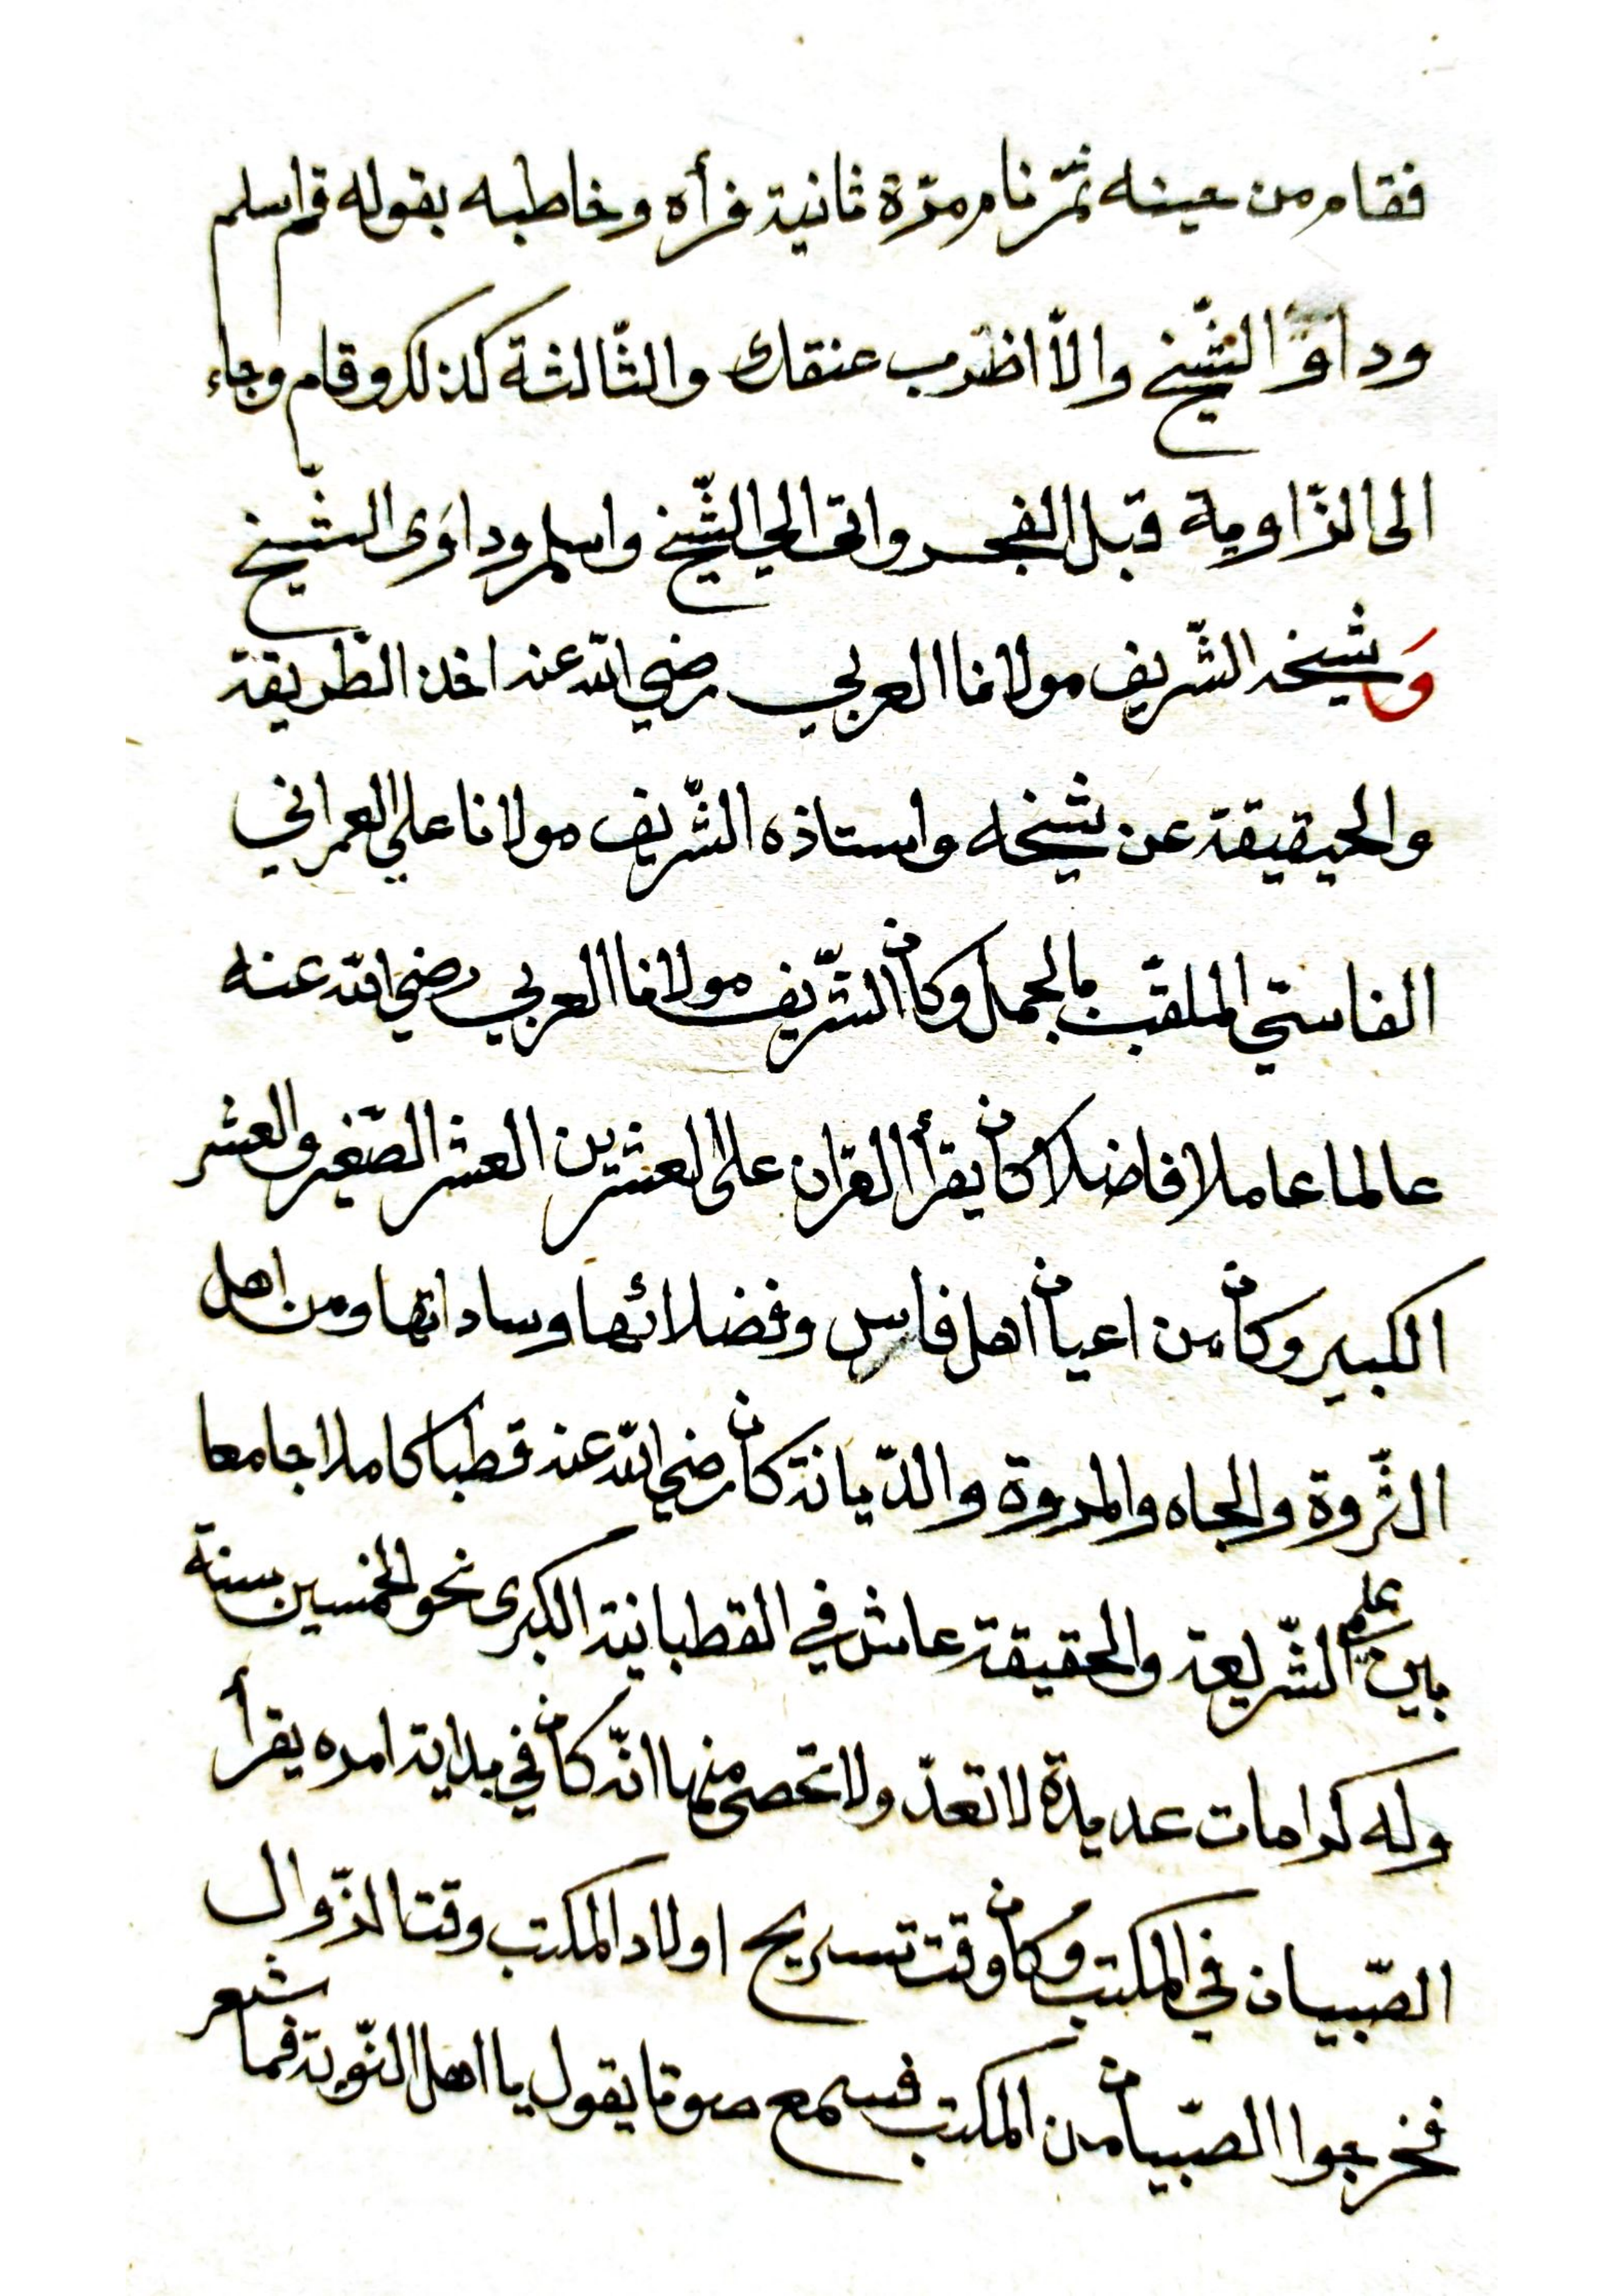 فقام من حينه ثمّ نام مرّة ثانية فرأه وخاطبه بقوله قم اسلم
وداو الشّيخ والّا اظرب عنقك والثّالثة كذلك وقام وجاء
الى الزّاوية قبل الفجر واتى الي الشّيخ واسلم وداوَى الشّيخ
وَشيخه الشّريف مولانا العربي رضي الله عنه اخذ الطّريقة
والحيقيقة عن شيخه واستاذه الشّريف مولانا علي العمراني
الفاسيّ الملقّب بالجمل وكان الشّريف مولانا العربي رضي الله عنه
عالما عاملا فاضلا كان يقرأ القران على العشرين العشر الصّغير والعشر
الكبير وكان من اعيان اهل فاس وفضلائها وساداتها ومن اهل
الثّروة والجاه والمروة والدّيانة كان رضي الله عنه قطبا كاملا جامعا
بين علم الشّريعة والحقيقة عاش في القطبانية الكبرى نحو الخمسين سنة
وله كرامات عديدة لا تعدّ ولا تحصى منها انّه كان في بداية امره يقرأ
الصّبيان في المكتب وكان وقت تسريح اولاد المكتب وقتا الزّوال
فخرجوا الصّبيان من المكتب فسمع صوتا يقول يا اهل النّوبة فما شعر